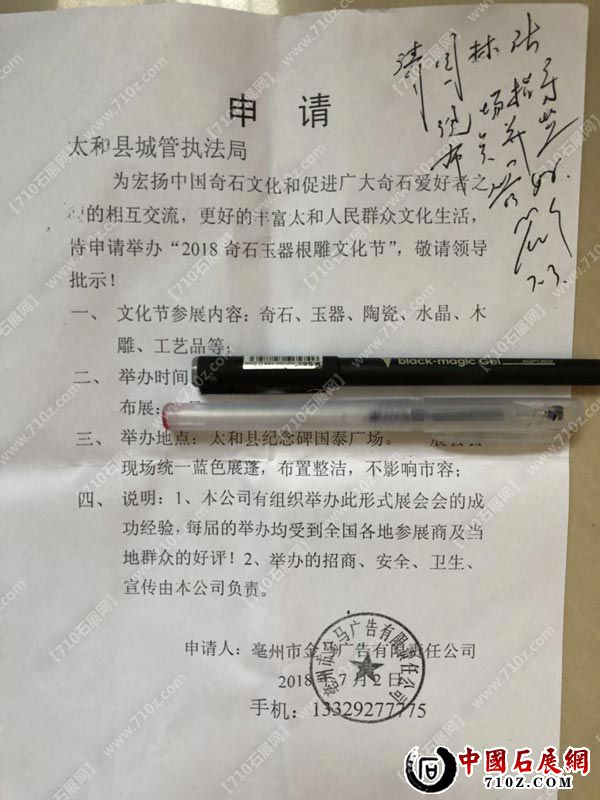 申 请
太和县城管执法局
为宏扬中国奇石文化和促进广大奇石爱好者之
的相互交流，更好的丰富太和人民群众文化生活，
待申请举办“2018 奇石玉器根雕文化节”，敬请领导
批示！
一、 文化节参展内容：奇石、玉器、陶瓷、水晶、木
雕、工艺品等；
二、 举办时间
布展：
black-magic Gel
三、 举办地点：太和县纪念碑国泰广场。
现场统一蓝色展蓬，布置整洁，不影响市容；
四、 说明：1、本公司有组织举办此形式展会会的成
功经验，每届的举办均受到全国各地参展商及当
地群众的好评！2、举办的招商、安全、卫生、
宣传由本公司负责。
申请人：亳州市金马广告有限责任公司
2018 7月2日
手机：13329277775
亳州市金马广告有限责任公司
7.3.
【710石展网】
www.710z.com
中國石展網
710Z.COM